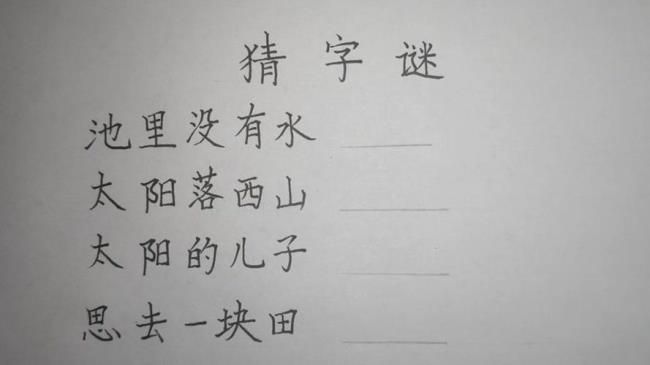 猜字谜
池里没有水
太阳落西山
太阳的儿子
思去一块田